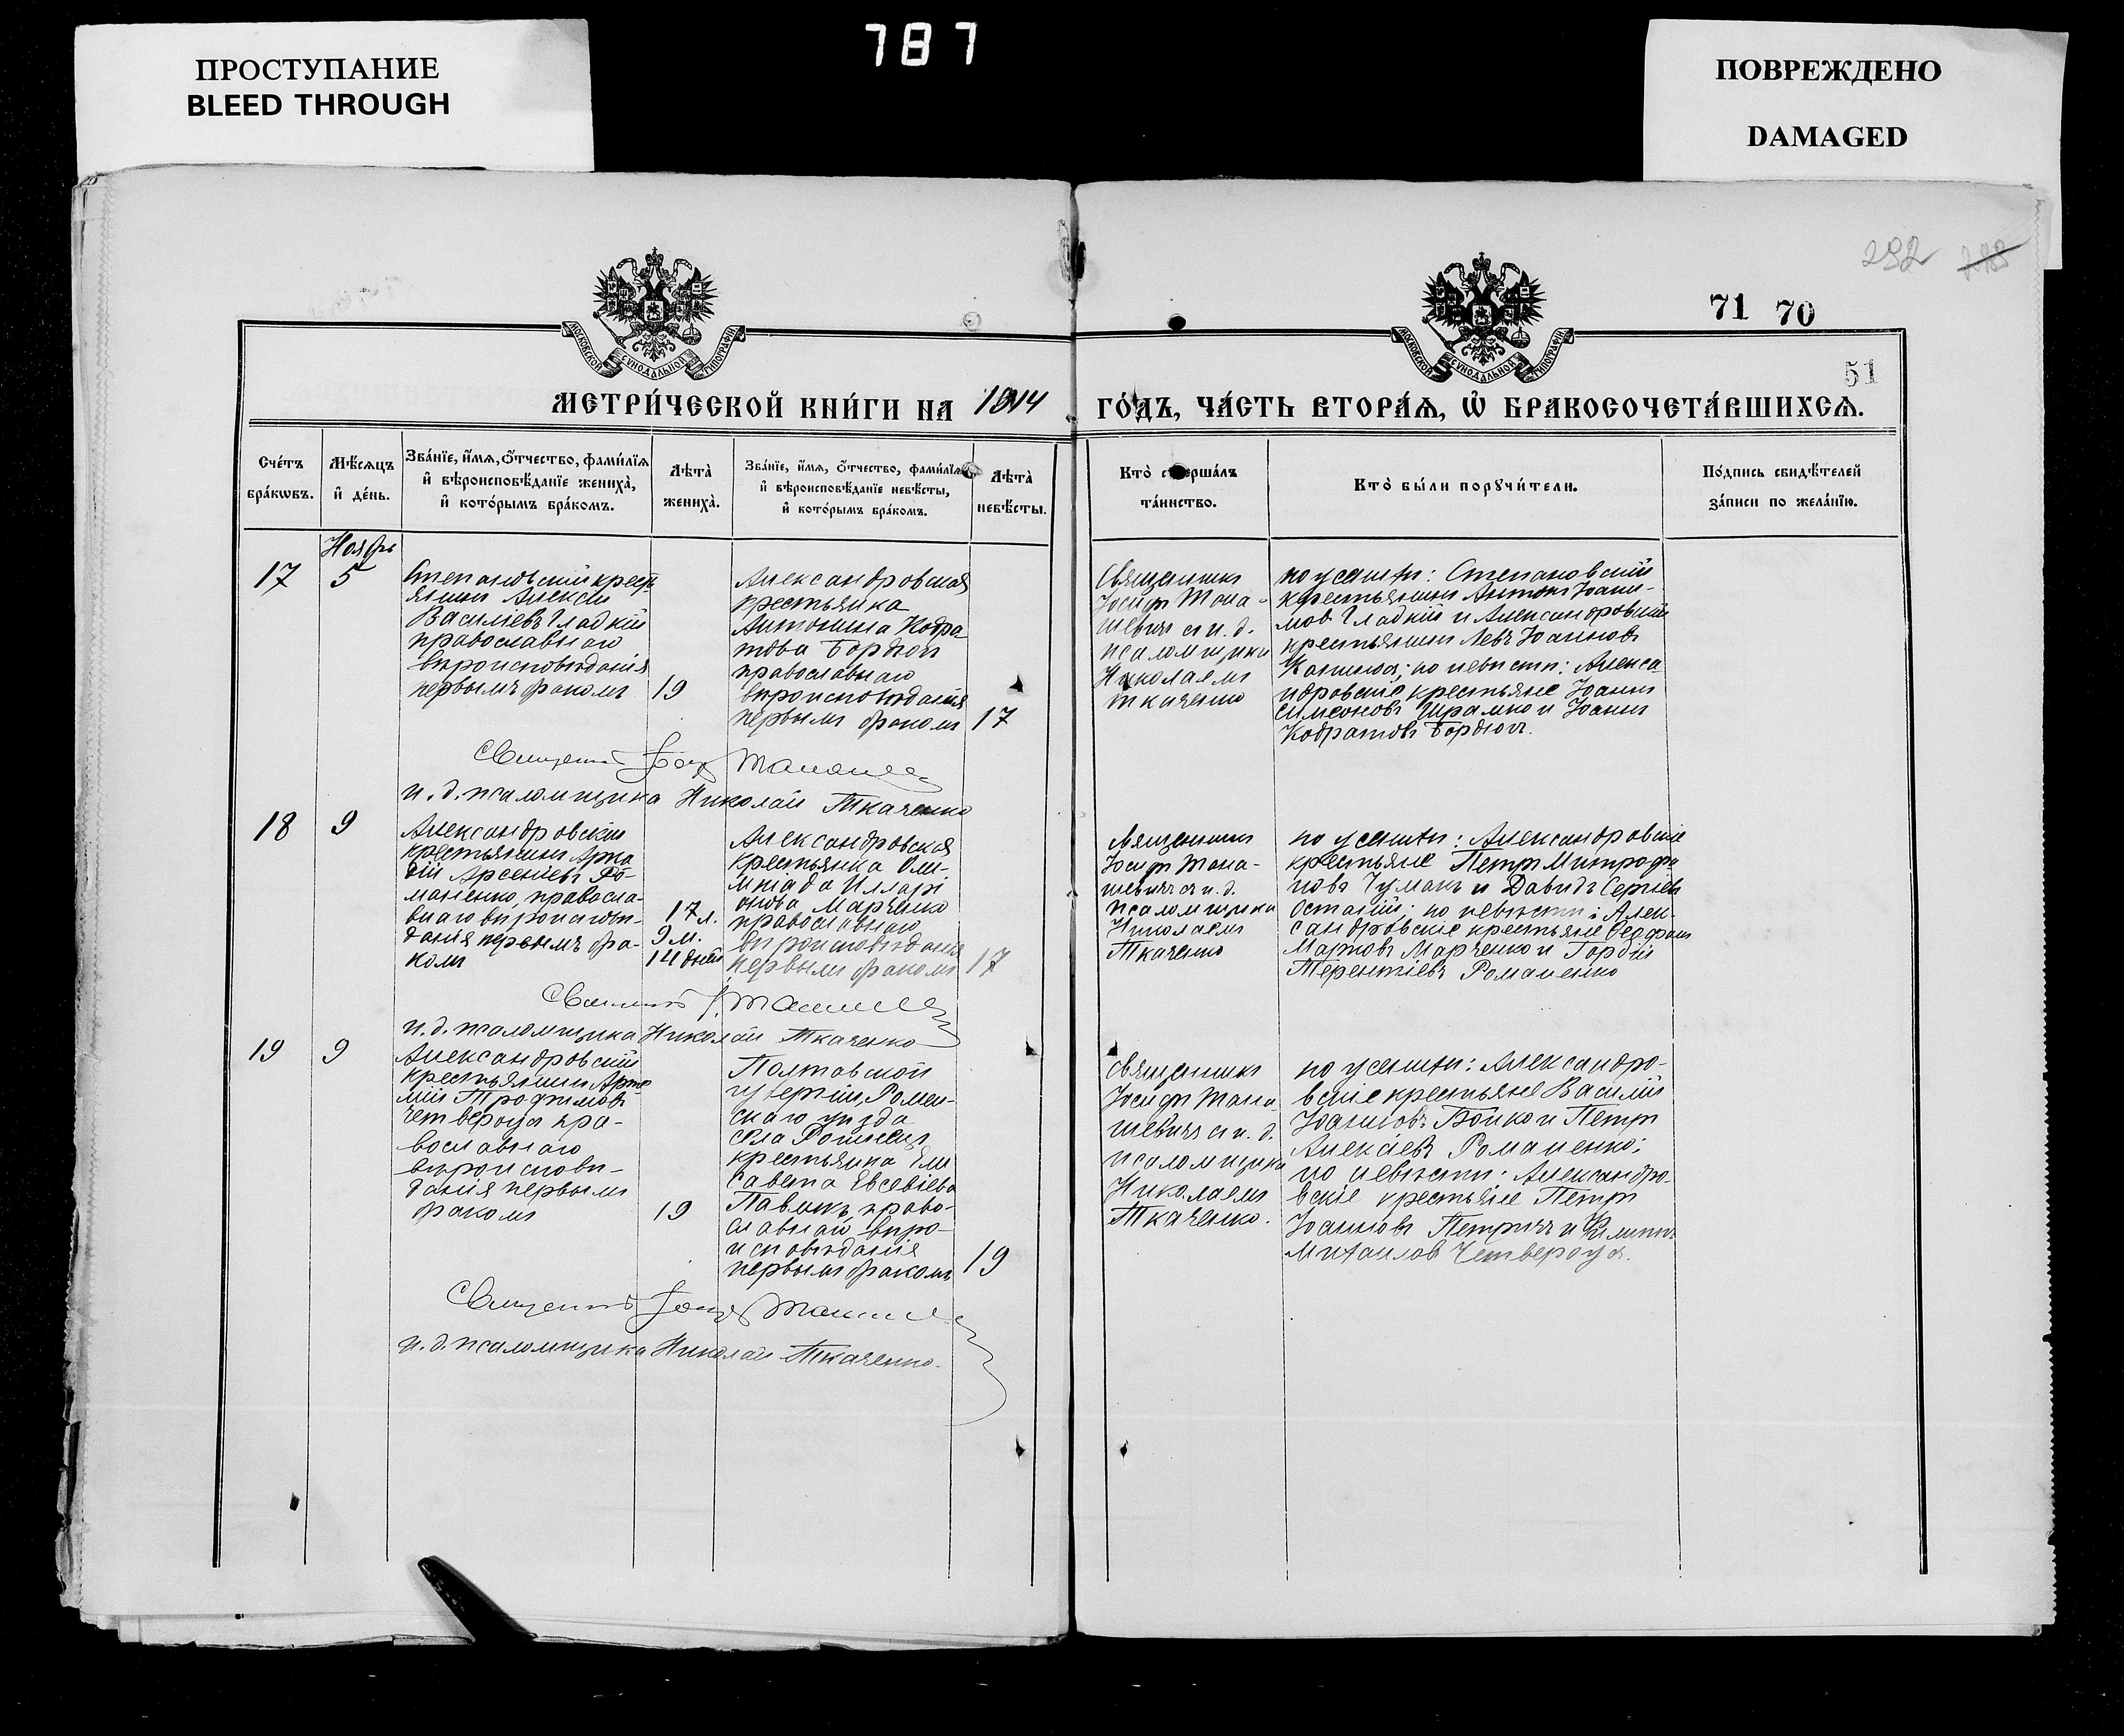 ПРОСТУПАНИЕ
BLEED THROUGH
787
ПОВРЕЖДЕНО
DAMAGED
292
71 70
51
МОСКОВСКОЙ СУНОДАЛЬНОЙ ТИПОГРАФІИ
МОСКОВСКОЙ СУНОДАЛЬНОЙ ТИПОГРАФІИ
МЕТРИ́ЧЕСКОЙ КНИ́ГИ НА 1914
ГО́ДЪ, ЧА́СТЬ ВТОРА́Ѧ, Ѡ҆ БРАКОСОЧЕТА́ВШИХСѦ.
Сче́тъ
бра́кѡвъ.
Мѣ́сѧцъ
и҆ де́нь.
Зва́нїе, и҆́мѧ, ѻ҆́тчество, фами́лїѧ
и҆ вѣроисповѣ́данїе жениха̀,
и҆ кото́рымъ бра́комъ.
Лѣ̑та̀
жениха̀.
Зва́нїе, и҆́мѧ, ѻ҆́тчество, фами́лїѧ
и҆ вѣроисповѣ́данїе невѣ́сты,
и҆ кото́рымъ бра́комъ.
Лѣ̑та̀
невѣ́сты.
Кто̀ соверша́лъ
та́инство.
Кто̀ бы́ли порꙋчи́тели.
По́дпись свидѣ́телей
за́писи по жела́нїю.
Ноябрь
17
5
Степановскій кресть
янинъ Алексій
Василіевъ Гладкій
православнаго
вѣроисповѣданія
первымъ бракомъ
19
Александровская
крестьянка
Антонина Кодра
това Бордюгъ
православнаго
вѣроисповѣданія
первымъ бракомъ
17
Священникъ
Іосифъ Мана-
шевичъ съ и. д.
псаломщика
Николаемъ
Ткаченко
по женихѣ: Степановскій
крестьянинъ Антонъ Іоанн-
овъ Гладкій и Александровскій
крестьянинъ Левъ Іоанновъ
по невѣстѣ: Алекса
ндровскіе крестьяне Іоаннъ
Симеоновъ Шрамко и Іоаннъ
Кодратовъ Бордюгъ.
Священникъ Іосифъ
и. д. псаломщика Николай Ткаченко
18
9
Александровскій
крестьянинъ Арка
дій Арсеніевъ Ро-
маненко, правосла-
внаго вѣроисповѣ-
данія первымъ бра-
комъ
17 л.
9 м.
14 дней
Александровская
крестьянка Оли-
мпіада Илларі
онова Марченко
православнаго
вѣроисповѣданія
первымъ бракомъ
17
Священникъ
Іосифъ Мана-
шевичъ съ и. д.
псаломщика
Николаемъ
Ткаченко
по женихѣ: Александровскіе
крестьяне Петръ Митрофа
новъ Чумакъ и Давидъ Сергіевъ
по невѣстѣ: Алек-
сандровскіе крестьяне
Марковъ Марченко и Гордій
Терентіевъ Романенко
Священникъ І.
и. д. псаломщика Николай Ткаченко
19
9
Александровскій
крестьянинъ Арте
мій Трофимовъ
Четверуга пра-
вославнаго
вѣроисповѣ-
данія первымъ
бракомъ
19
Полтавской
губерніи, Ромен-
скаго уѣзда
села
крестьянка Ели
савета Евсевіева
Павликъ, право-
славнаго вѣро-
исповѣданія
первымъ бракомъ
19
Священникъ
Іосифъ Мана
шевичъ съ и. д.
псаломщика
Николаемъ
Ткаченко.
по женихѣ: Александро-
вскіе крестьяне Василій
Іоанновъ Бойко и Петръ
Алексіевъ Романенко;
по невѣстѣ: Александро-
вскіе крестьяне Петръ
Іоанновъ Петричъ и Филиппъ
Михаиловъ Четверуга.
Священникъ Іосифъ
и. д. псаломщика Николай Ткаченко.